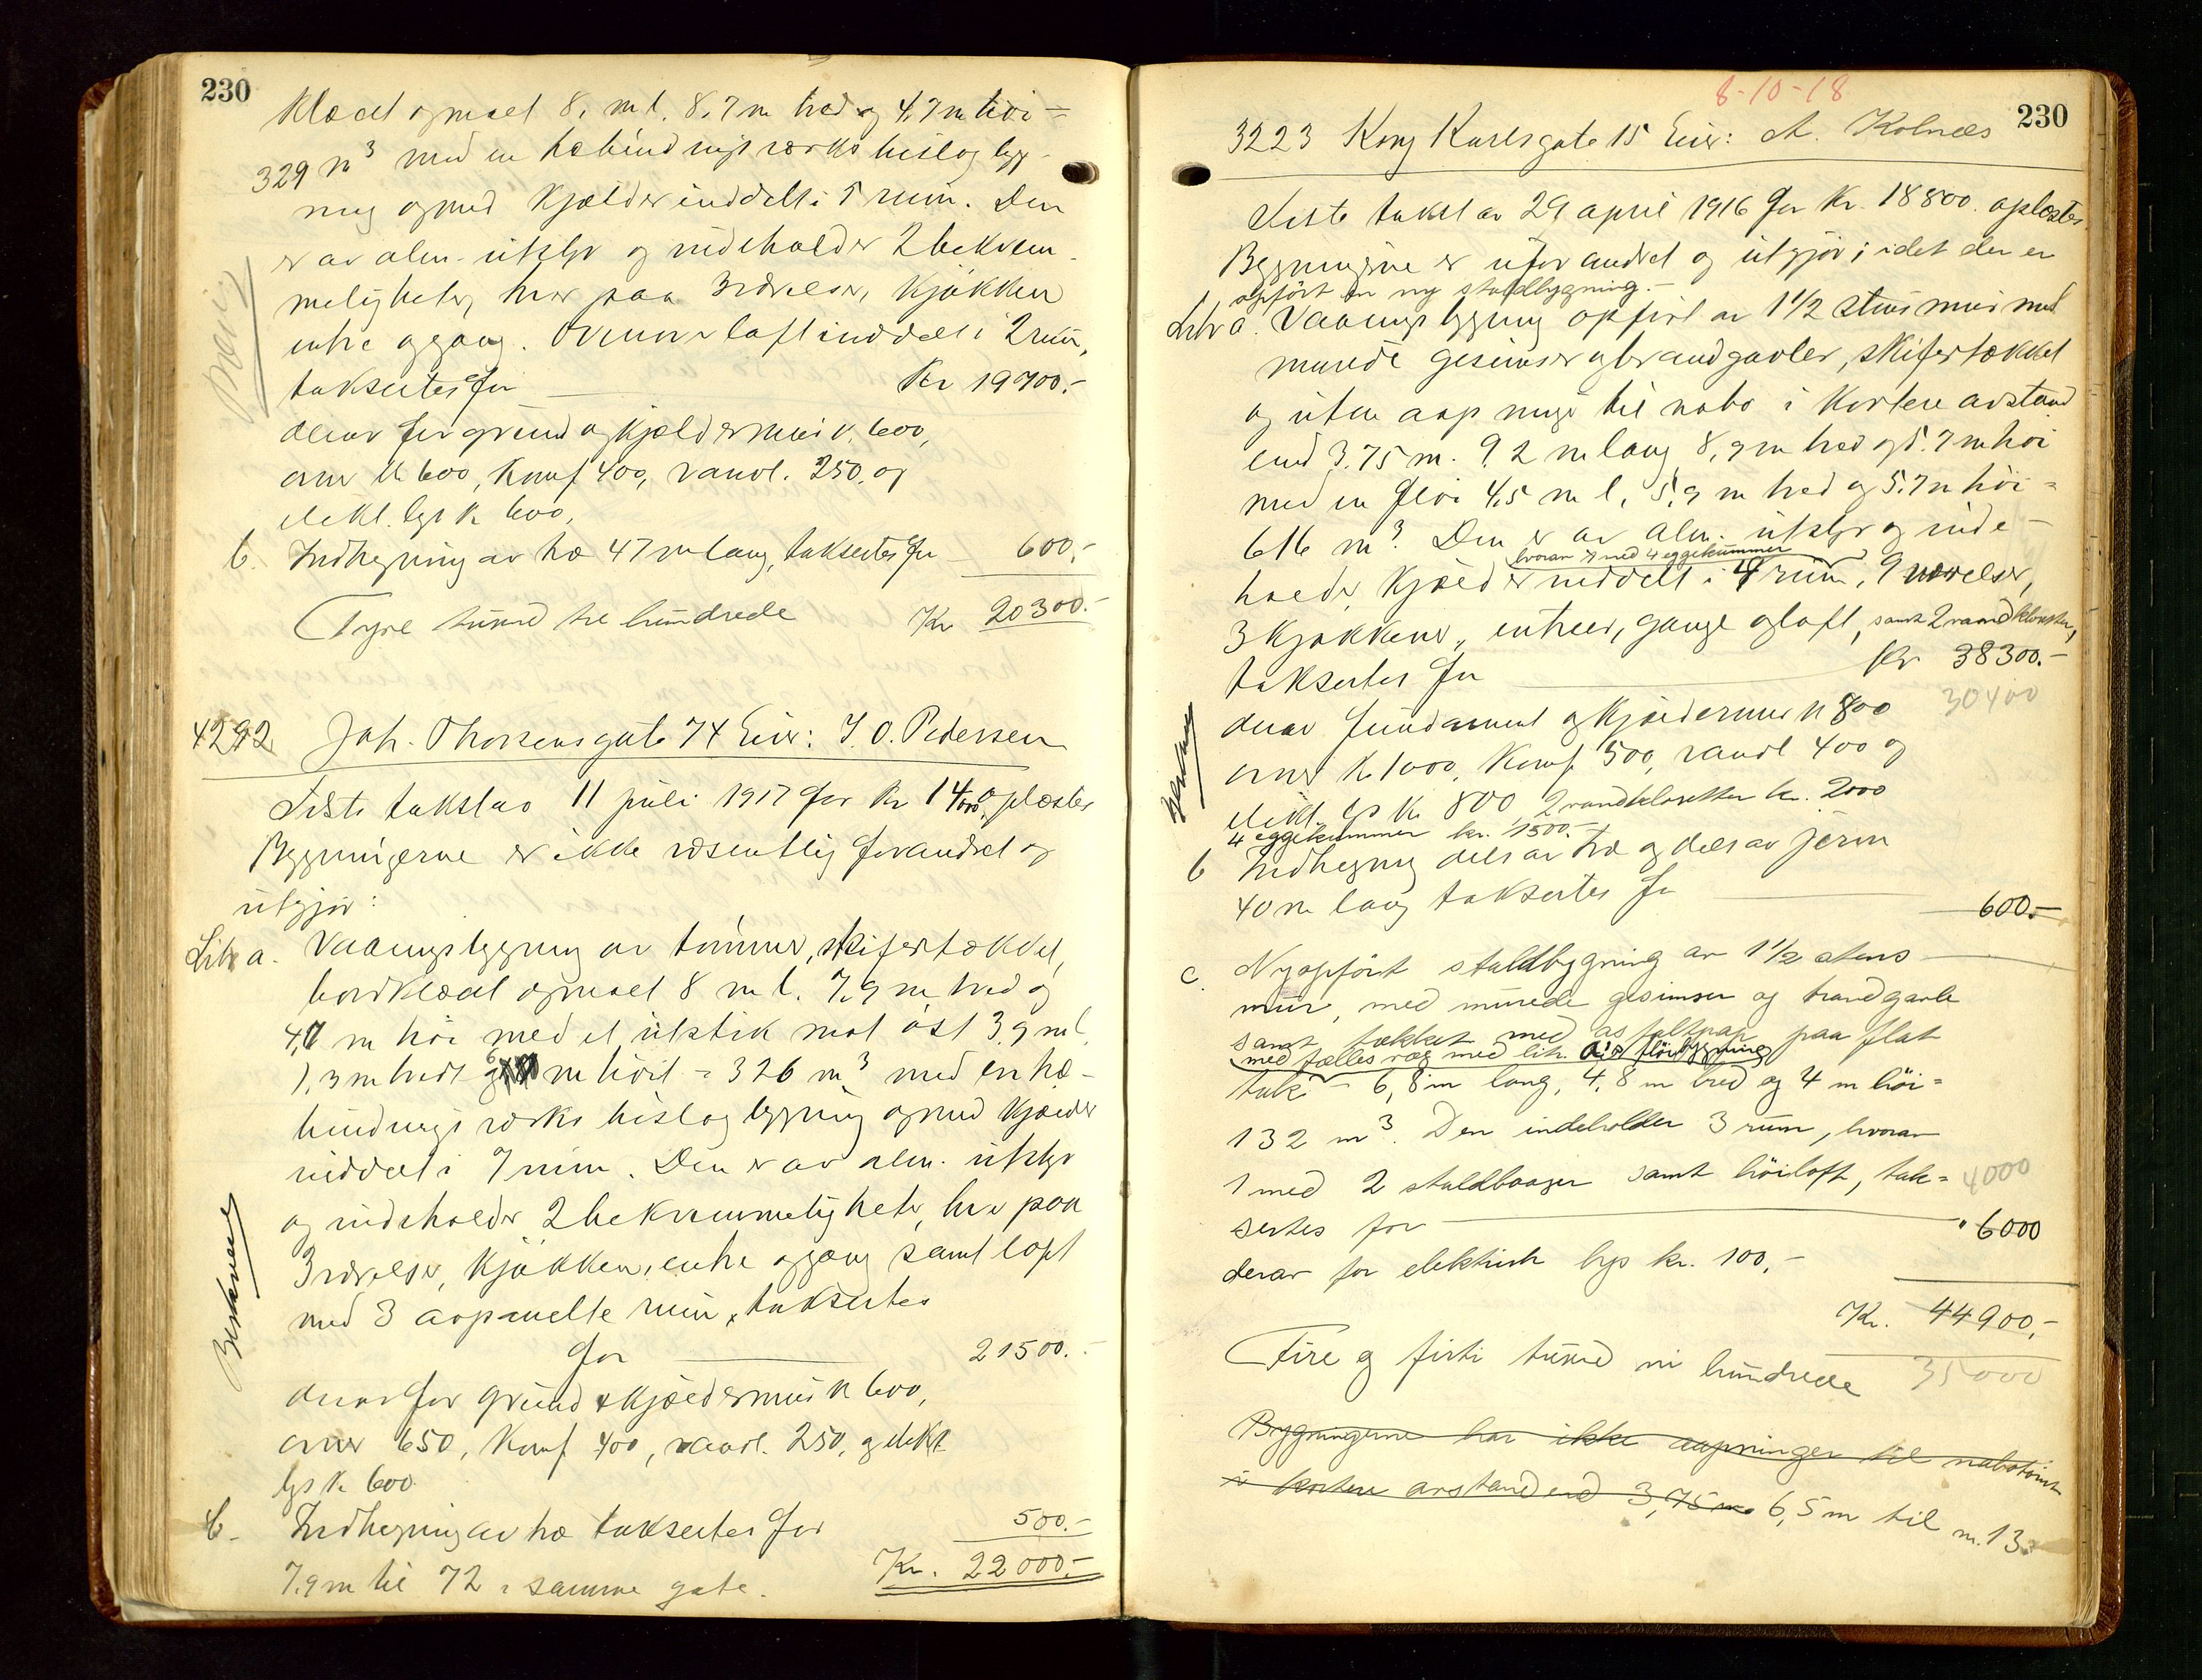 230
klædt opmaet 8, m l. 8,7 m bred og 4,7 m høi =
329 m³ med en træbindingsverks bislag byg-
ning og med kjælder inddelt i 5 rum. Den
er av alm. utstyr og indeholder 2 bekvem-
meligheter, hver paa 3 værelser, kjøkken
entre og gang. Ovenover loft inddelt i 2 rum,
taksertes for Kr 19700.-
derav for grund og kjældermur k. 600,
ovner k 600, komf 400, vandl. 250, og
elekt. lys k 600,
b. Indhegning av træ 47 m lang, taksertes for 600,-
Tyve tusind tre hundrede Kr 20300.-
4292 Joh. Thorsensgate 74 Eier: J. O. Pedersen
Siste takst av 11 juli 1917 for kr 14000, oplæstes
Bygningerne er ikke væsentlig forandret og
utgjør:
Litr a. Vaaningsbygning av tømmer, skifertækket,
bordklædt opmaet 8 m l. 7,9 m bred og
4,7 m høi med et utstik mot øst 3,9 m l
1,3 m bredt og 6 m høit = 326 m³ med en træ-
bindings verks bislag bygning og med kjælder
inddelt i 7 rum. Den er av alm. utstyr
og indeholder 2 bekvemmeligheter, hver paa
3 værelser, kjøkken, entre og gang samt loft
med 3 avpanelte rum, taksertes
for 21500.-
derav for grund & kjældermur k 600,
ovner 650, komf 400, vandl. 250, og elekt
lys k 600
b. Indhegning av træ taksertes for 500.-
7.9 m til 72 i samme gate. Kr. 22000.-
8-10-18
230
3223 Kong Karlsgate 15 Eier: A. Kolnæs
Siste takst av 29 april 1916 for kr. 18800. oplæstes
Bygningerne er uforandret og utgjør; idet der er
opført en ny staldbygning.-
Litr a. Vaaningsbygning opført av 1½ stens mur med
murede gesimser og brandgavler, skifertækket
og uten aapninger til nabo i kortere avstand
end 3.75 m. 9,2 m lang 8,9 m bred og 5.7 m høi
med en fløi 4,5 m l, 5,9 m bred og 5.7 m høi =
616 m³. Den er av alm. utstyr og inde-
hvorav 1 med 4 eggekummer
holder kjælder inddelt i 4 rum, 9 værelser,
3 kjøkkener, entreer, gange og loft, samt 2 vandklosetter,
takseertes for Kr 38300.-
30400
derav fundament og kjældermur k 800
ovner k 1000, komf 500, vandl 400 og
elekt. lys k 800, 2 vandklosetter kr. 2000
4 eggekummer kr. 1500.-
b Indhegning dels av træ og dels av jern
40 m lang takseertes for 600.-
c. Nyopført staldbygning av 1½ stens
mur, med murede gesimser og brandgavle
samt tækket med asfaltpap paa flat
med fælles væg med litr. a's fløibygning
tak 6,8 m lang, 4,8 m bred og 4 m høi =
132 m³. Den indeholder 3 rum, hvorav
1 med 2 staldbaaser samt høiloft, tak= 4000
sertes for " 6000
derav for elektrisk lys kr. 100,-
Kr. 44900,-
Fire og firti tusind ni hundrede 35000
Bygningerne har ikke aapninger til nabotomt
i kortere avstand end 3,75 m. 6,5 m til nr. 13.